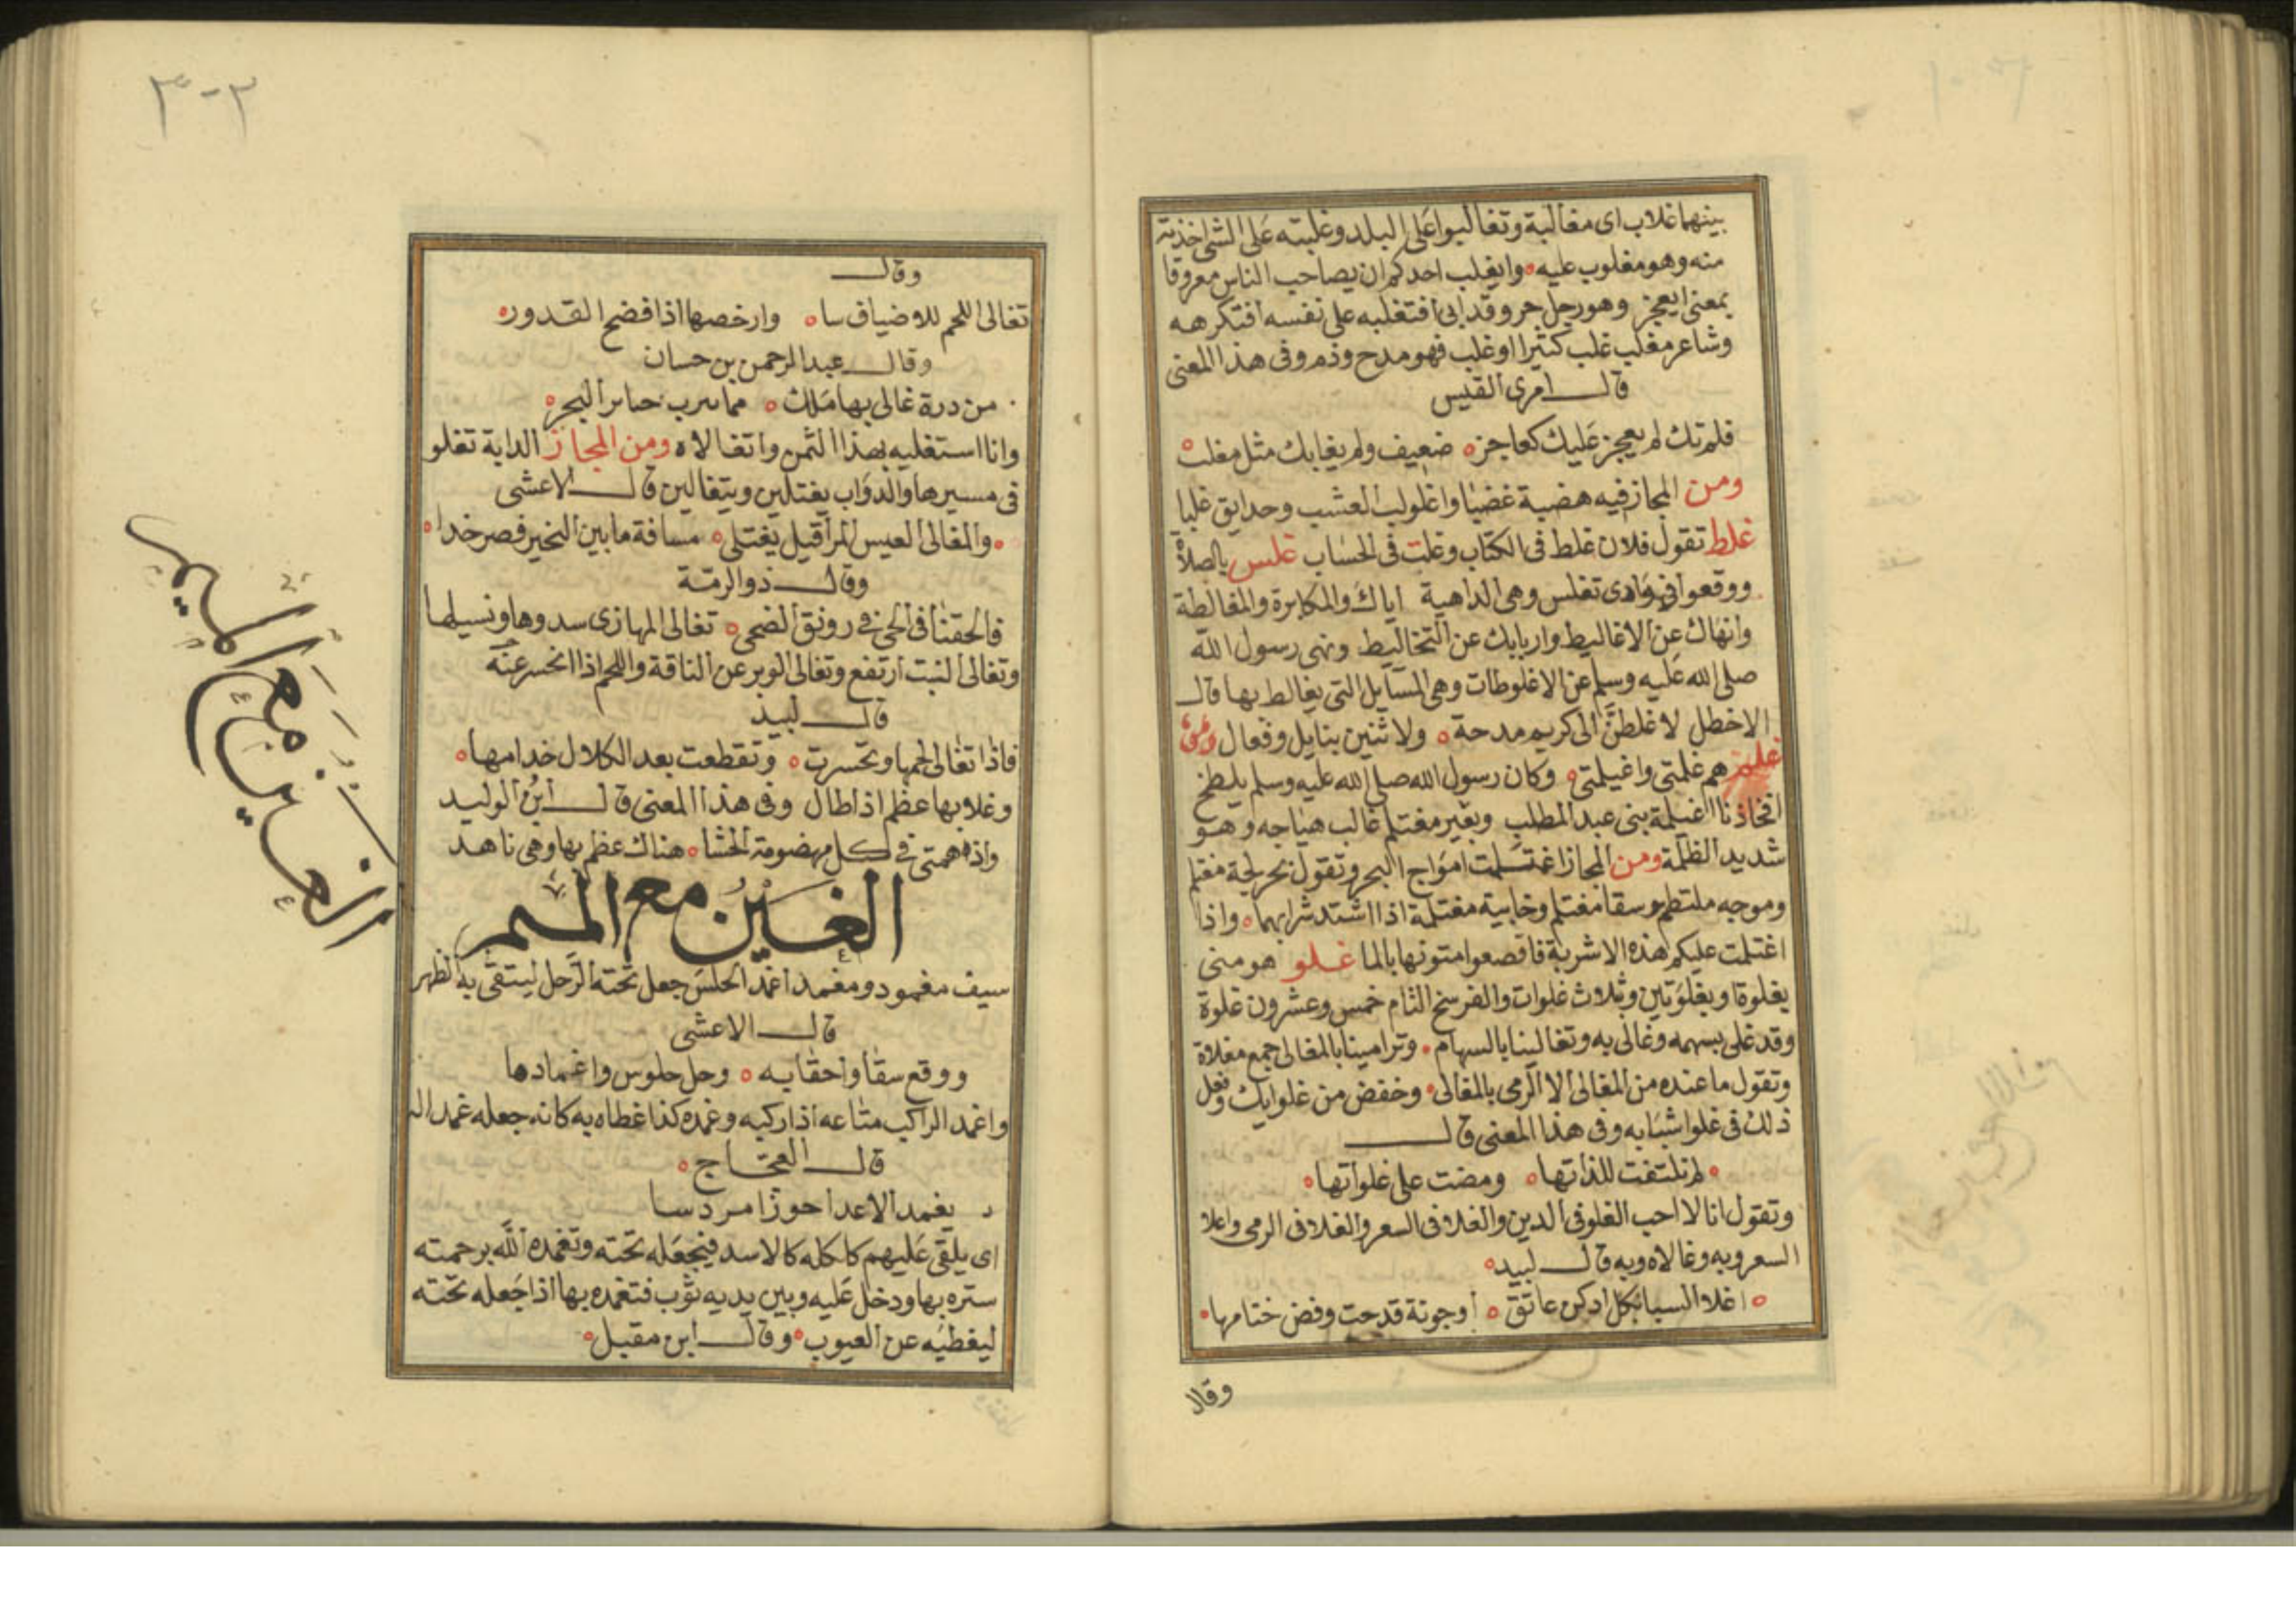 بينهما غلاب اى مغالبة وتغالبوا على البلد وغلبته على الشى اخذته
منه وهو مغلوب عليه وايغلب احدكم ان يصاحب الناس معروفا
بمعنى ايعجز وهو رجل حر وقد ابى افتغلبه على نفسه افتكرهه
وشاعر مغلب غلب كثيرا او غلب فهو مدح وذم وفى هذا المعنى
قال امرى القيس
ضعيف ولم يغلبك مثل مغلب
ومن المجاز فيه هضبة غضبا واغلولب العشب وحدايق غلبا
غلط تقول فلان غلط فى الكتاب وغلت فى الحساب غلس بالصلاة
ووقعوا فى وادى تغلس وهى الداهية اياك والمكابرة والمغالطة
وانهاك عن الاغاليط واربابك عن التخاليط ونهى رسول الله
صلى الله عليه وسلم عن الاغلوطات وهى المسايل التى يغالط بها قال
الاخطل لاغلطن الى كريم مدحة ولاثنين بنايل وفعال
غلم هم غلمتى واغيلمتى وكان رسول الله صلى الله عليه وسلم يلطخ
افخاذنا اغيلمة بنى عبد المطلب وبعير مغتلم غالب هياجه وهو
شديد الظلمة ومن المجاز اغتلمت امواج البحر وتقول بحر لجة مغتلم
وموجه ملتطم وسقا مغتلم وخابية مغتلمة اذا اشتد شرابهما واذا
اغتلمت عليكم هذه الاشربة فاقصعوا متونها بالما غلو هو منى
بغلوة او بغلوتين وثلاث غلوات والفرسخ التام خمس وعشرون غلوة
وقد غلى بسهمه وغالى به وتغالينا بالسهام وترامينا بالمغالى جمع مغلاة
وتقول ما عنده من المغالى الا الرمى بالمغالى وخفض من غلوايك وفعل
ذلك فى غلوا شبابه وفى هذا المعنى قال
لم تلتفت للذاتها ومضت على غلوائها
وتقول انا لا احب الغلو فى الدين والغلا فى السعر والغلا فى الرمى واغلا
السعر وبه وغالاه وبه قال لبيد
اغلا السبا بكل ادكن عاتق او جونة قدحت وفض ختامها
وقال
٣٠٣
وقال
تغالى اللحم للاضياف سا وارخصها اذا فضح القدور
وقال عبد الرحمن بن حسان
من درة غالى بها ملك مما ترب حاير البحر
وانا استغليه بهذا الثمن واتغالاه ومن المجاز الدابة تغلو
فى مسيرها والدواب يغتلين ويتغالين قال الاعشى
مسافة ما بين النخير فصرخدا
وقال ذو الرمة
فالحقنا فى الحى فى رونق الضحى تغالى المهارى سدوها ونسيلها
وتغالى النبت ارتفع وتغالى الوبر عن الناقة واللحم اذا انحسر عنه
قال لبيد
فاذا تغالى لحمها وتحسرت وتقطعت بعد الكلال خدامها
وغلا بها عظم اذا طال وفى هذا المعنى قال ابن الوليد
هناك عظم بها وهى ناهد
الغين مع الميم
سيف مغمود ومغمد اغمد الحلس جعل تحته الرحل ليتقى به الظهر
قال الاعشى
ووقع سقا واحقابه وحل حلوس واغمادها
واغمد الراكب متاعه اذا ركبه وغمده كذا غطاه به كانه جعله غمدا له
قال العجاج
يغمد الاعدا حوزا مردسا
اى يلقى عليهم كلكله كالاسد فيجعله تحته وتغمده الله برحمته
ستره بها ودخل عليه وبين يديه ثوب فتغمده بها اذا جعله تحته
ليغطيه عن العيوب وقال ابن مقبل
الغين مع الميم